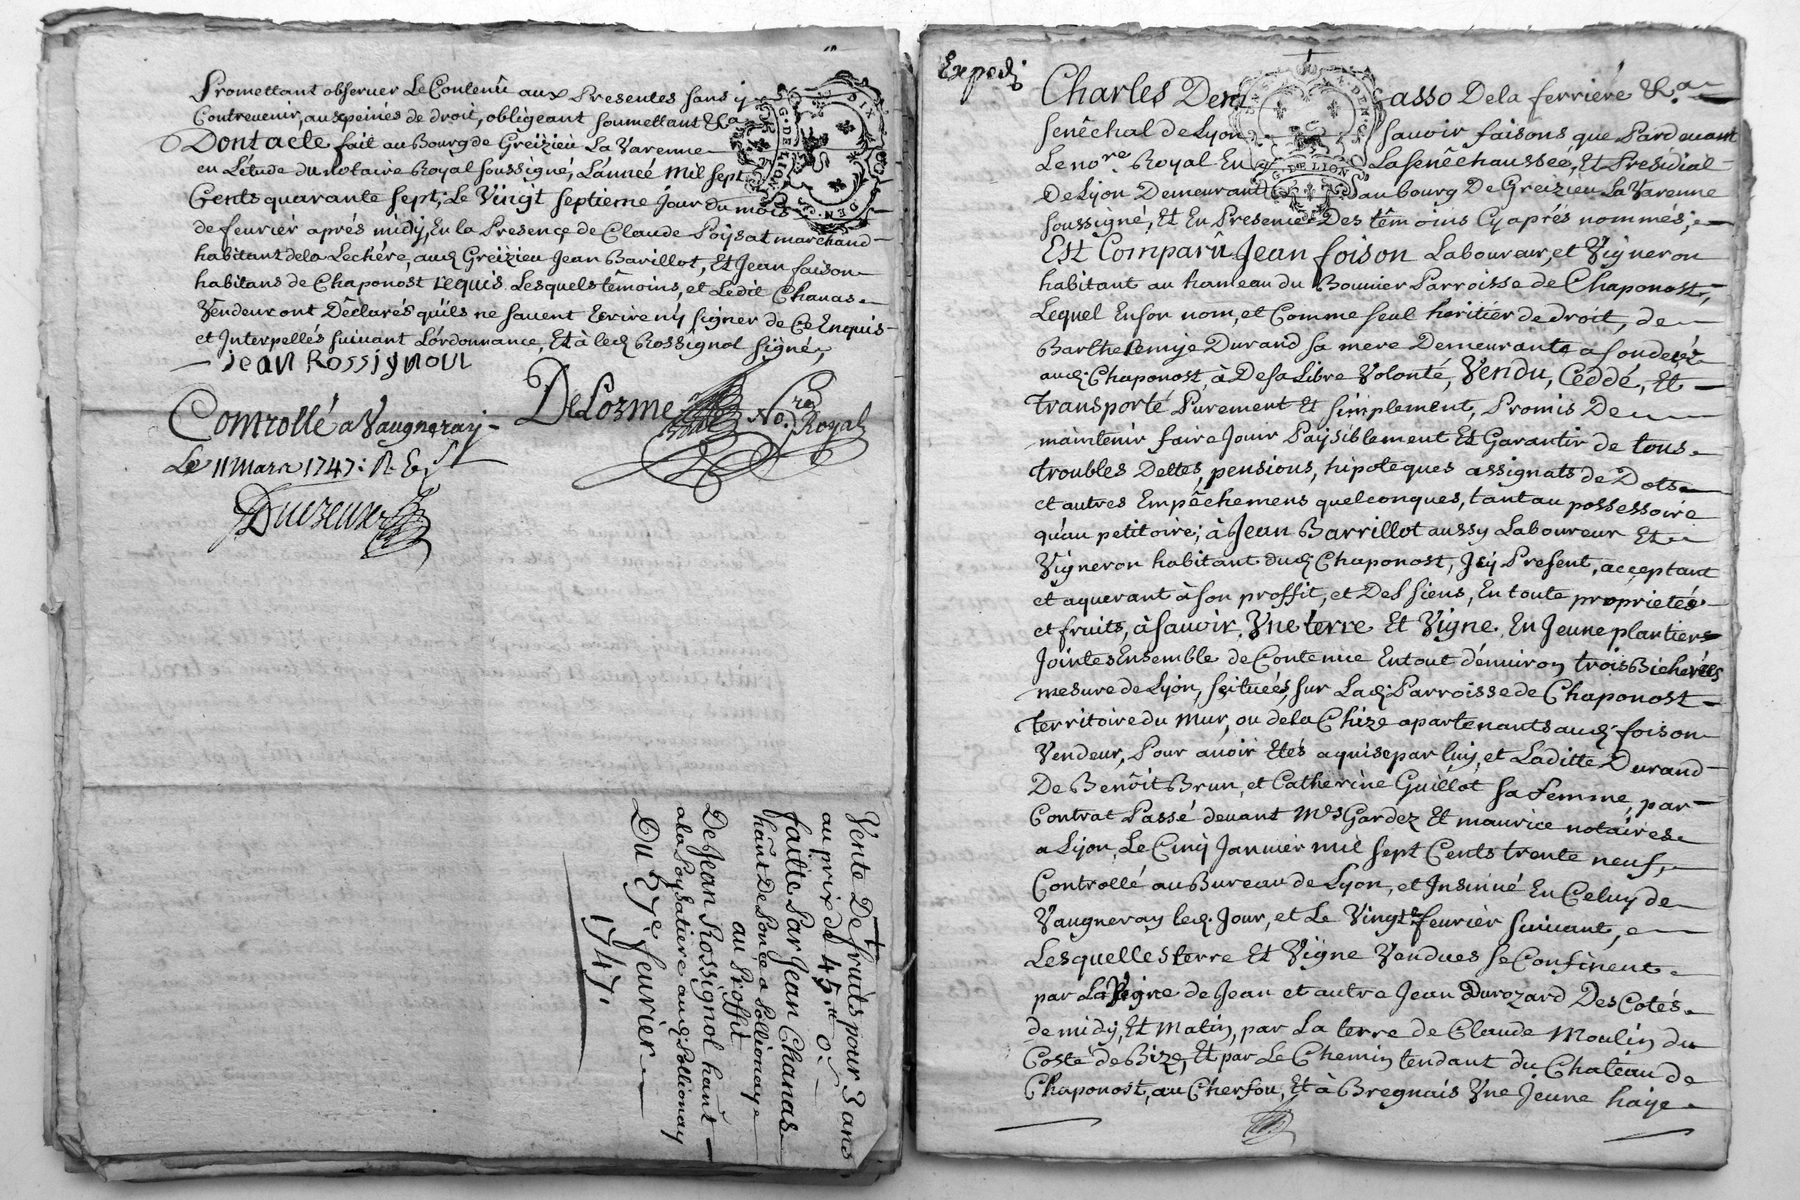 Promettant observer Le Contenû aux Presentes sans y
Contrevenir, aux peines de droit, obligeant soumettant &ca
Dont acte fait au Bourg de Greizieu La Varenne
en L'étude du notaire Royal soussigné, L'année mil sept
Cents quarante sept, Le Vingt septieme Jour du mois
de fevrier aprés midy, En la Presence de Claude Poysat marchand
habitant de la Lechére, aud. Greizieu Jean Barillot, Et Jean foison
habitans de Chaponost requis. Lesquels têmoins, et Ledit Chanas
Vendeur ont Dêclarés qu'ils ne savent Ecrire ny signer de Ce Enquis
et Interpellés suivant L'ordonnance, Et à led. Rossignol signé,
Jean Rossignoul
DeLorme No.re Royal
Controllé a Vaugneray
Le 11 mars 1747:
Vente De fruits pour 3 ans
au prix de 45.tt 0.s
faitte Par Jean Chanas
hañt De Ponce a Pollionnay
au Proffit
De Jean Rossignol hañt
a la Poysatiere aud. Pollionay
Du 27.e fevrier
1747.
Exped.
Charles Deni asso De la ferriére &ca
senêchal de Lyon sçavoir faisons, que Pardevant
Le no.re Royal En La senêchaussée, Et Presidial
De Lyon Demeurant au bourg De Greizieu La Varenne
soussigné, Et En Presence Des têmoins Cy aprés nommés;
Est Comparû Jean foison Laboureur, et Vigneron
habitant au hameau du Bounier Parroisse de Chaponost,
Lequel En son nom, et Comme seul heritier de droit, de
Barthelemye Durand sa mere Demeurante a son deces
aud. Chaponost, à De sa Libre Volonté, Vendu, Ceddé, Et
transporté Purement Et simplement, Promis De
maintenir faire Jouir Paysiblement Et Garantir de tous
troubles Dettes, pensions, hipoteques assignats de Dots
et autres Empêchemens quelconques, tant au possessoire
qu'au petitoire; à Jean Barrillot aussy Laboureur Et
Vigneron habitant dud. Chaponost, Jcy Present, acceptant
et aquerant à son proffit, et Des siens, En toute proprietés
et fruits, à sçavoir, Vne terre Et Vigne, En Jeune plantier
Jointes Ensemble de Contenue En tout d'environ trois Bicherées
mesure de Lyon, scituées, sur Lad. Parroisse de Chaponost
territoire du mur, ou de la Chize apartenants aud. foison
Vendeur, Pour avoir Etés aquise par luy, et Laditte Durand
De Benôit Brun, et Catherine Guillot sa femme, par
Contrat Passé devant M.es Gardez Et maurice notaires
a Lyon, Le Cinq Janvier mil sept Cents trente neuf,
Controllé au Bureau de Lyon, et Insinué En Celuy de
Vaugneray led. Jour, et Le Vingt fevrier suivant,
Lesquelles terre Et Vigne Vendues se Confinent
par La Vigne de Jean et autre Jean Durozard Des Cotés
de midy, Et matin, par La terre de Claude Moulin du
Costé de Bize, Et par Le Chemin tendant du Chateau de
Chaponost, au Cherfou, Et à Bregnais Vne Jeune haye